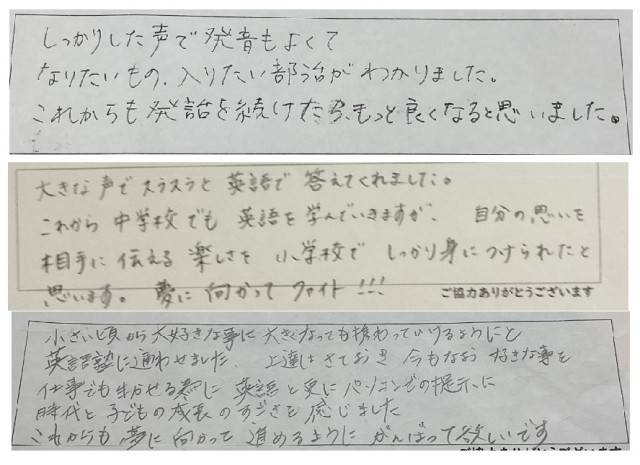 しっかりした声で発音もよくて
なりたいもの、入りたい部活がわかりました。
これからも発話を続けたら、もっと良くなると思いました。
大きな声でスラスラと英語で答えてくれました。
これから中学校でも英語を学んでいきますが、自分の思いを
相手に伝える楽しさを小学校でしっかり身につけられたと
思います。夢に向かってファイト!!!
ご協力ありがとうございます
小さい頃から大好きな事に大きくなっても携わっていけるようにと
英語塾に通わせました。上達はさておき今もなお好きな事を
仕事でも生かせる為に英語と更にパソコンでの提示に
時代と子どもの成長のすごさを感じました
これからも夢に向かって進めるようにがんばって欲しいです